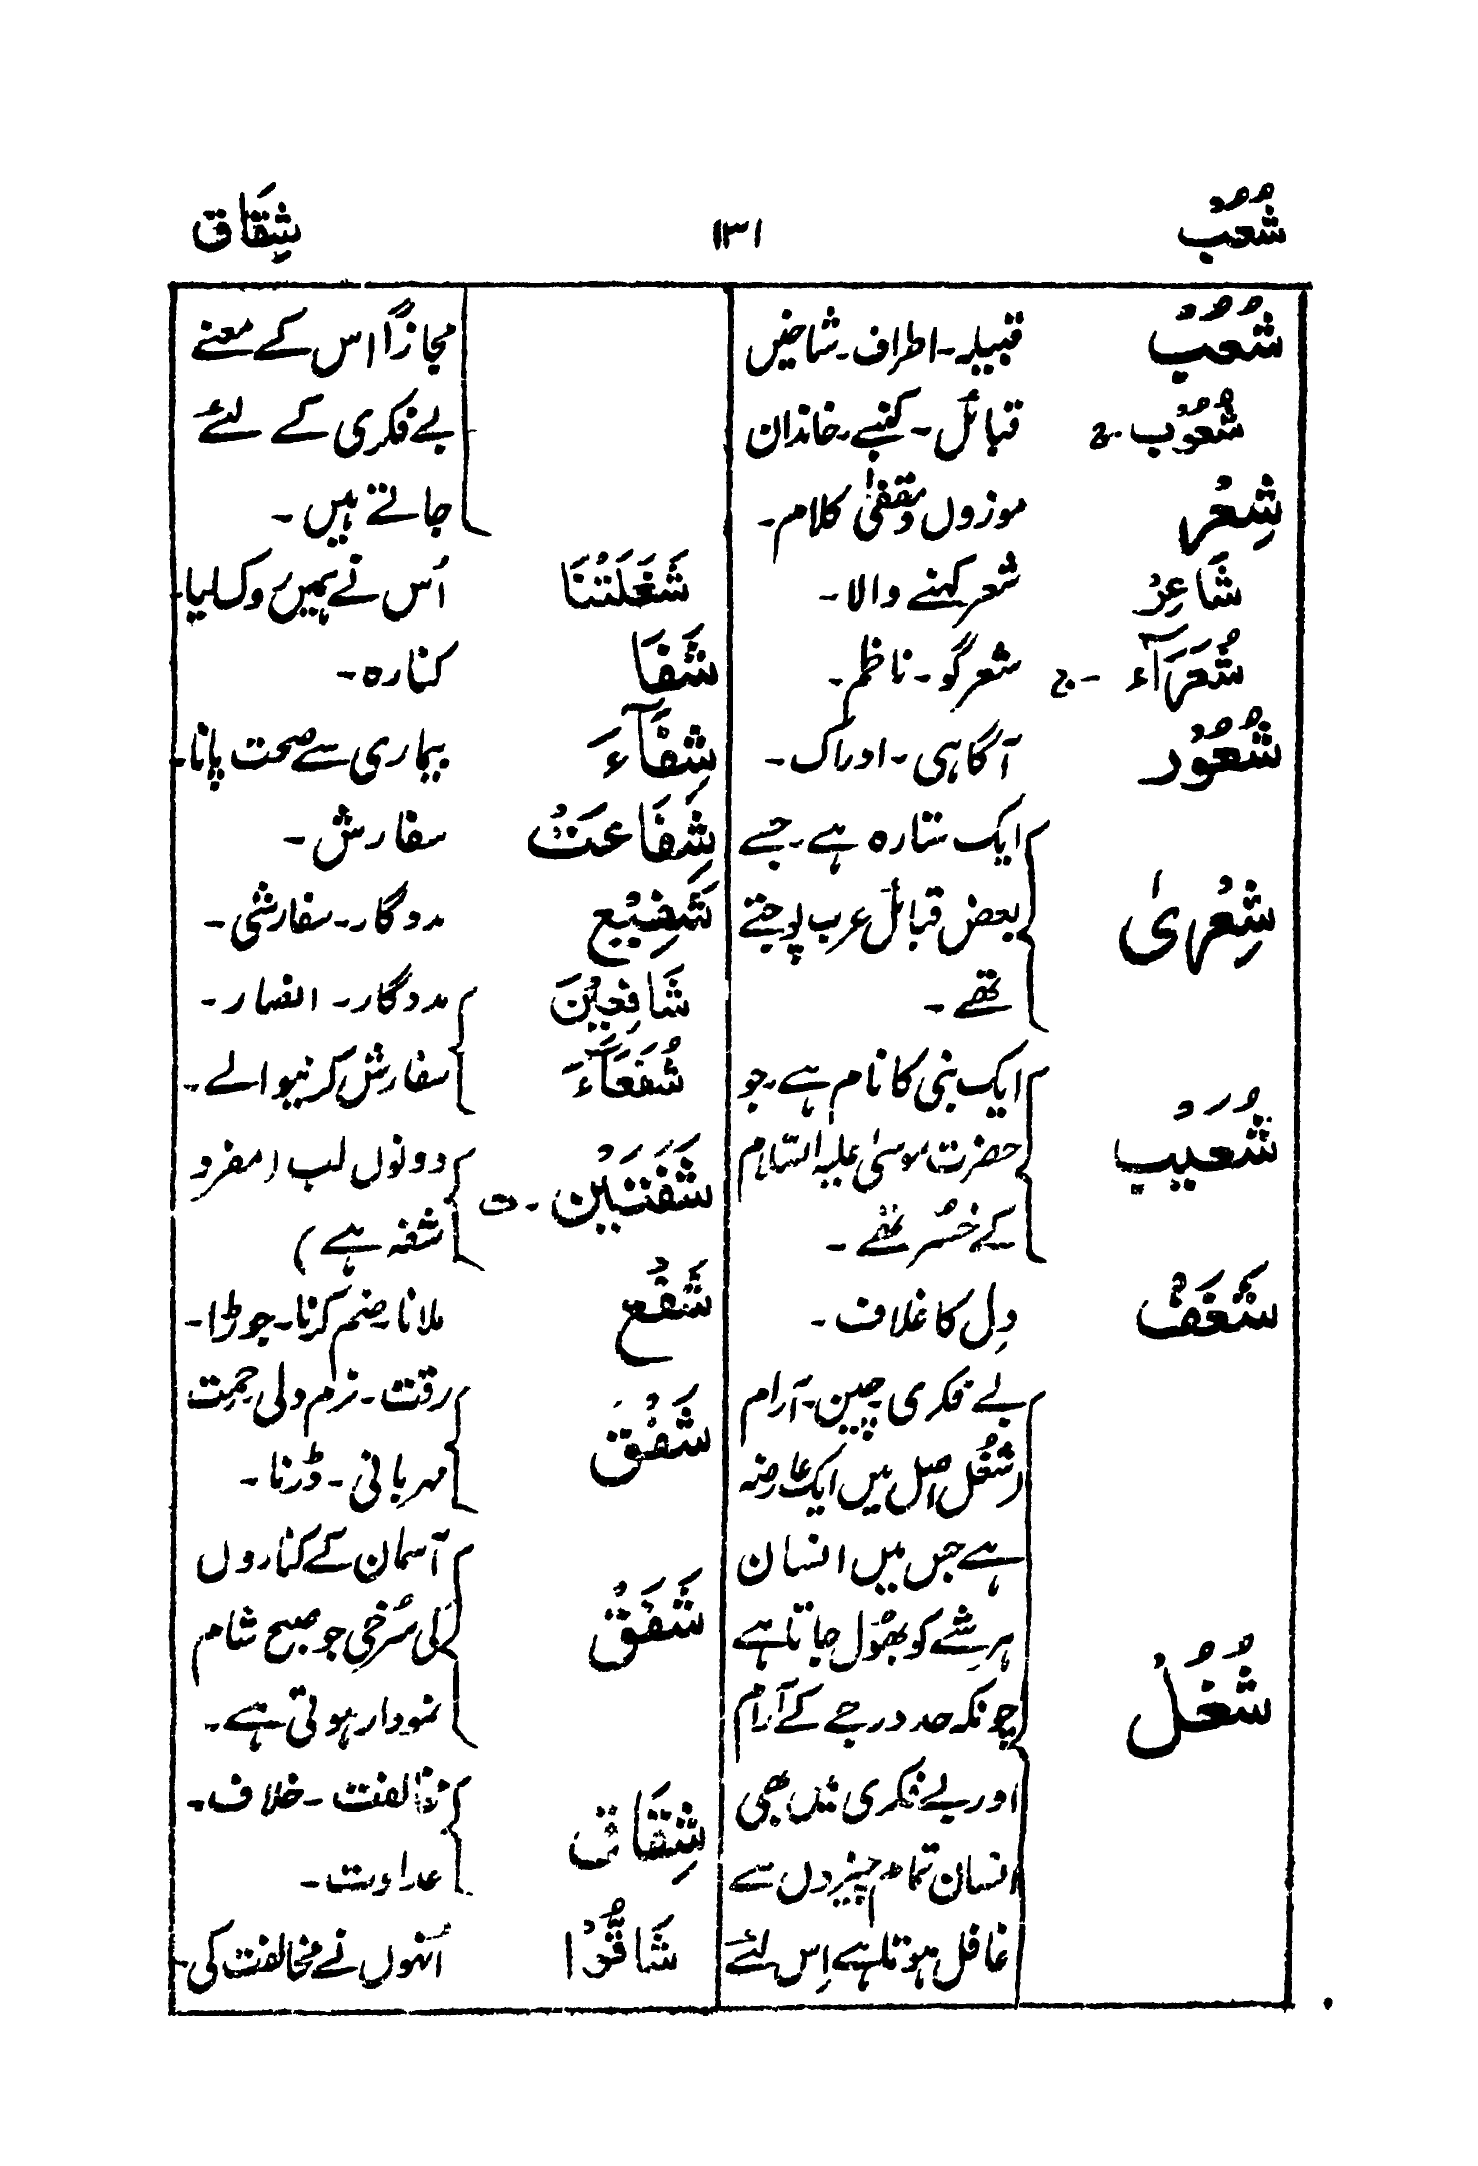 شُعُبٌ ۱۳۱ شِقَاق
شُعُبٌ قبیلہ۔ اطراف۔ شاخیں
شُعُوْب۔ ج قبائل۔ کنبے۔ خاندان
شِعْر موزوں و مقفیٰ کلام۔
شَاعِرٌ شعر کہنے والا۔
شُعَرَآء۔ ج شعر گو۔ ناظم۔
شُعُوْر آگاہی۔ ادراک۔
ایک ستارہ ہے۔ جسے
شِعْرٰی بعض قبائل عرب پوجتے
تھے۔
ایک نبی کا نام ہے۔ جو
شُعَیْب حضرت موسٰی علیہ السّلام
کے خُسر تھے۔
شَغَفٌ دِل کا غلاف۔
بے فکری چین۔ آرام
(شُغُل اصل میں ایک عارضہ
ہے جس میں انسان
ہر شے کو بھُول جاتا ہے
شُغُلٌ چونکہ حد درجے کے آرام
اور بے فکری میں بھی
انسان تمام چیزوں سے
غافل ہوتا ہے اِس لئے
مجازاً اس کے معنے
بے فکری کے لئے
جاتے ہیں۔
شَغَلَتْنَا اُس نے ہمیں روک لیا۔
شَفَا کنارہ۔
شِفَآءَ بیماری سے صحت پانا۔
شِفَاعَتٌ سفارش۔
شَفِیْع مددگار۔ سفارشی۔
شَافِعِیْنَ مددگار۔ انصار۔
شُفَعَآءَ سفارش کرنیوالے۔
شَفَتَیْن۔ ت دونوں لب (مفرد
شفہ ہے)
شَفْع ملانا۔ ضم کرنا۔ جوڑا۔
شَفْقَ رقت۔ نرم دلی۔ رحمت
مہربانی۔ ڈرنا۔
آسمان کے کناروں
شَفَقٌ کی سُرخی جو صبح شام
نمودار ہوتی ہے۔
شِقَاق مخالفت۔ خلاف۔
عداوت۔
شَاقُّوْا اُنہوں نے مخالفت کی۔